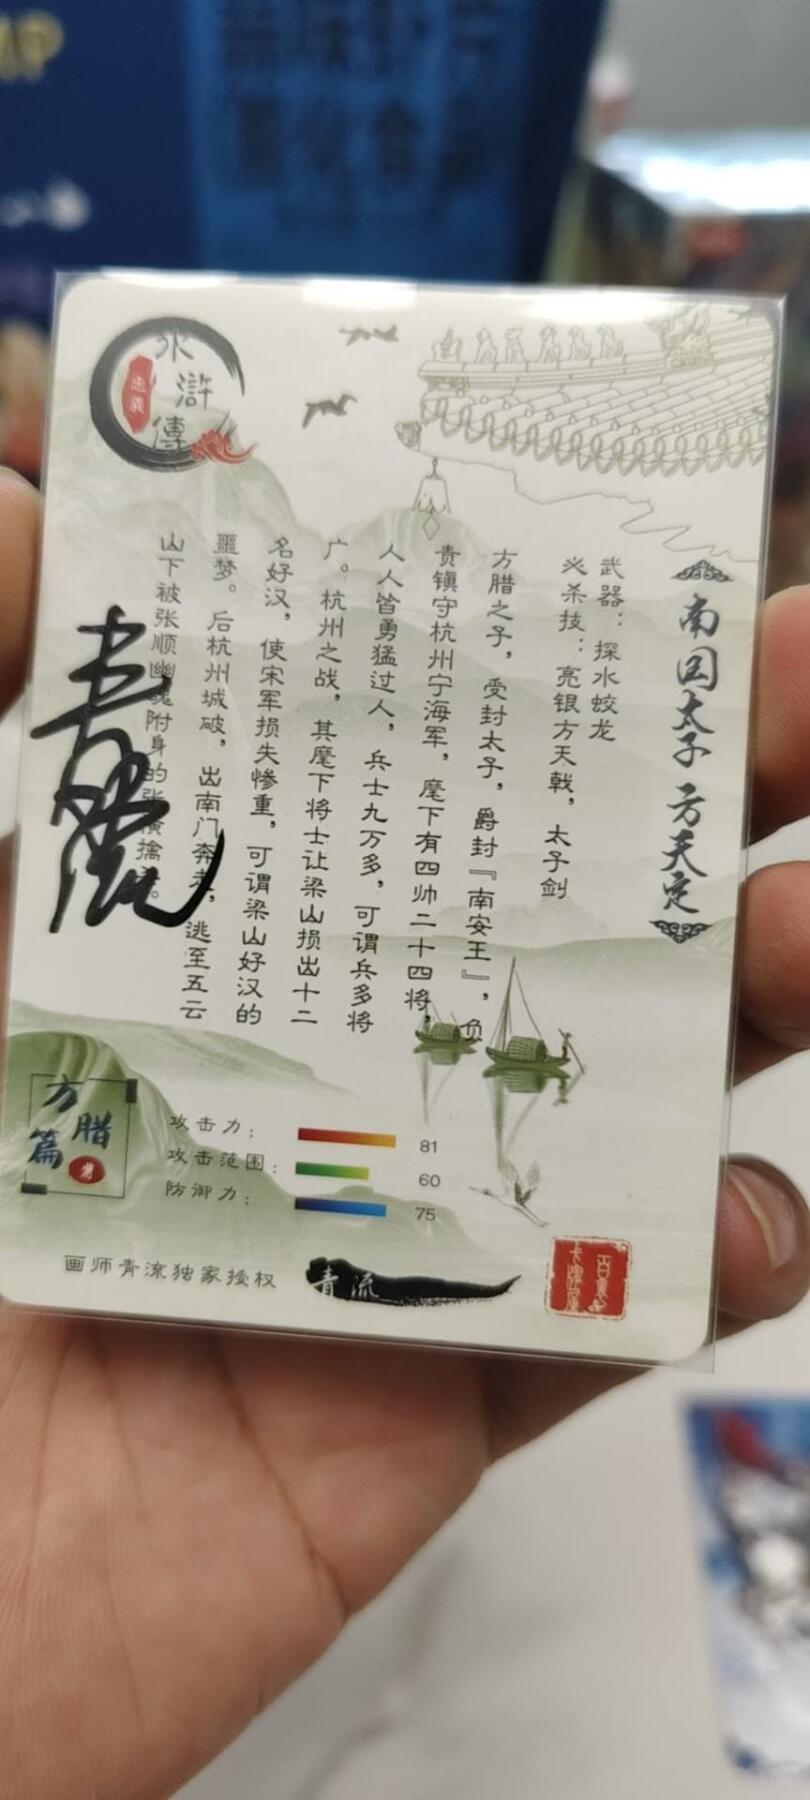 水滸傳
忠義
南国太子 方天定
武器：探水蛟龙
必杀技：亮银方天戟，太子剑
方腊之子，受封太子，爵封『南安王』，负
责镇守杭州宁海军，麾下有四帅二十四将，
人人皆勇猛过人，兵士九万多，可谓兵多将
广。杭州之战，其麾下将士让梁山损出十二
名好汉，使宋军损失惨重，可谓梁山好汉的
噩梦。后杭州城破，出南门奔走，逃至五云
山下被张顺幽魂附身的张横擒
青流
方腊篇
攻击力： 81
攻击范围： 60
防御力： 75
画师青流独家授权 青流